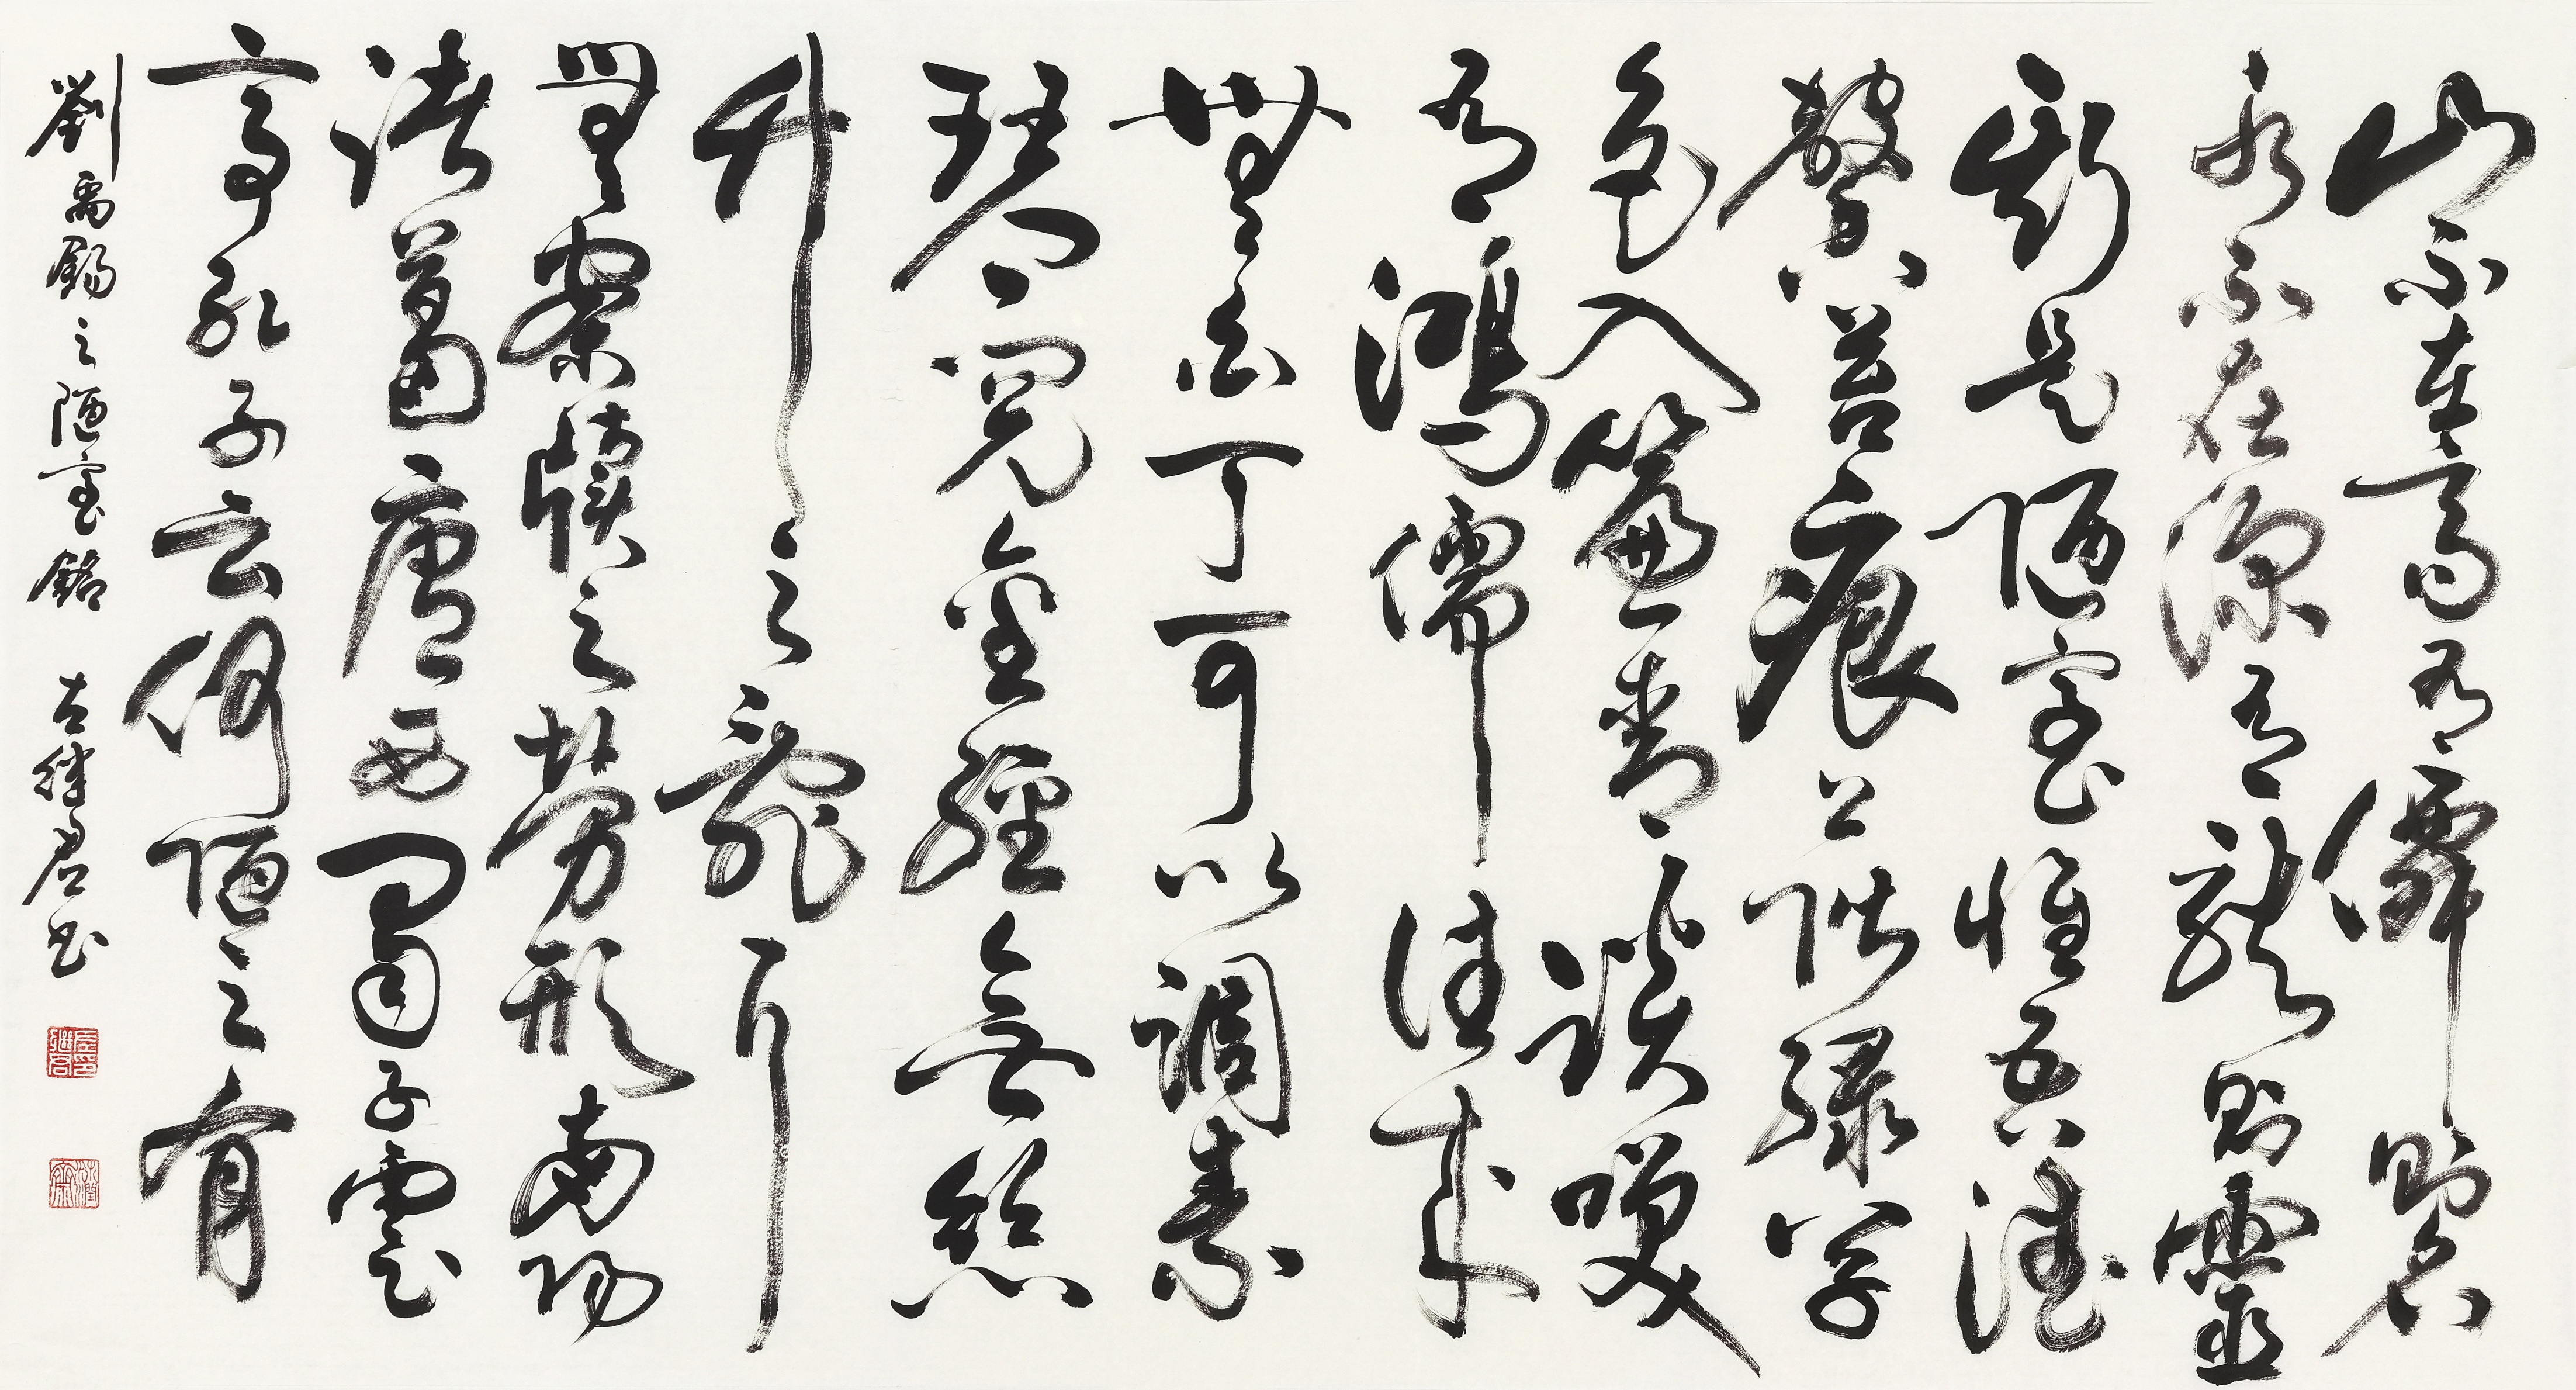 山不在高有僊則名
水不在深有龍則靈
斯是陋室惟吾德
馨苔痕上階綠草
色入簾青談笑
有鴻儒往來
無白丁可以調素
琴閱金經無絲
竹之亂耳
無案牘之勞形南陽
諸葛廬西蜀子雲
亭孔子云何陋之有
劉禹錫之陋室銘 继君书